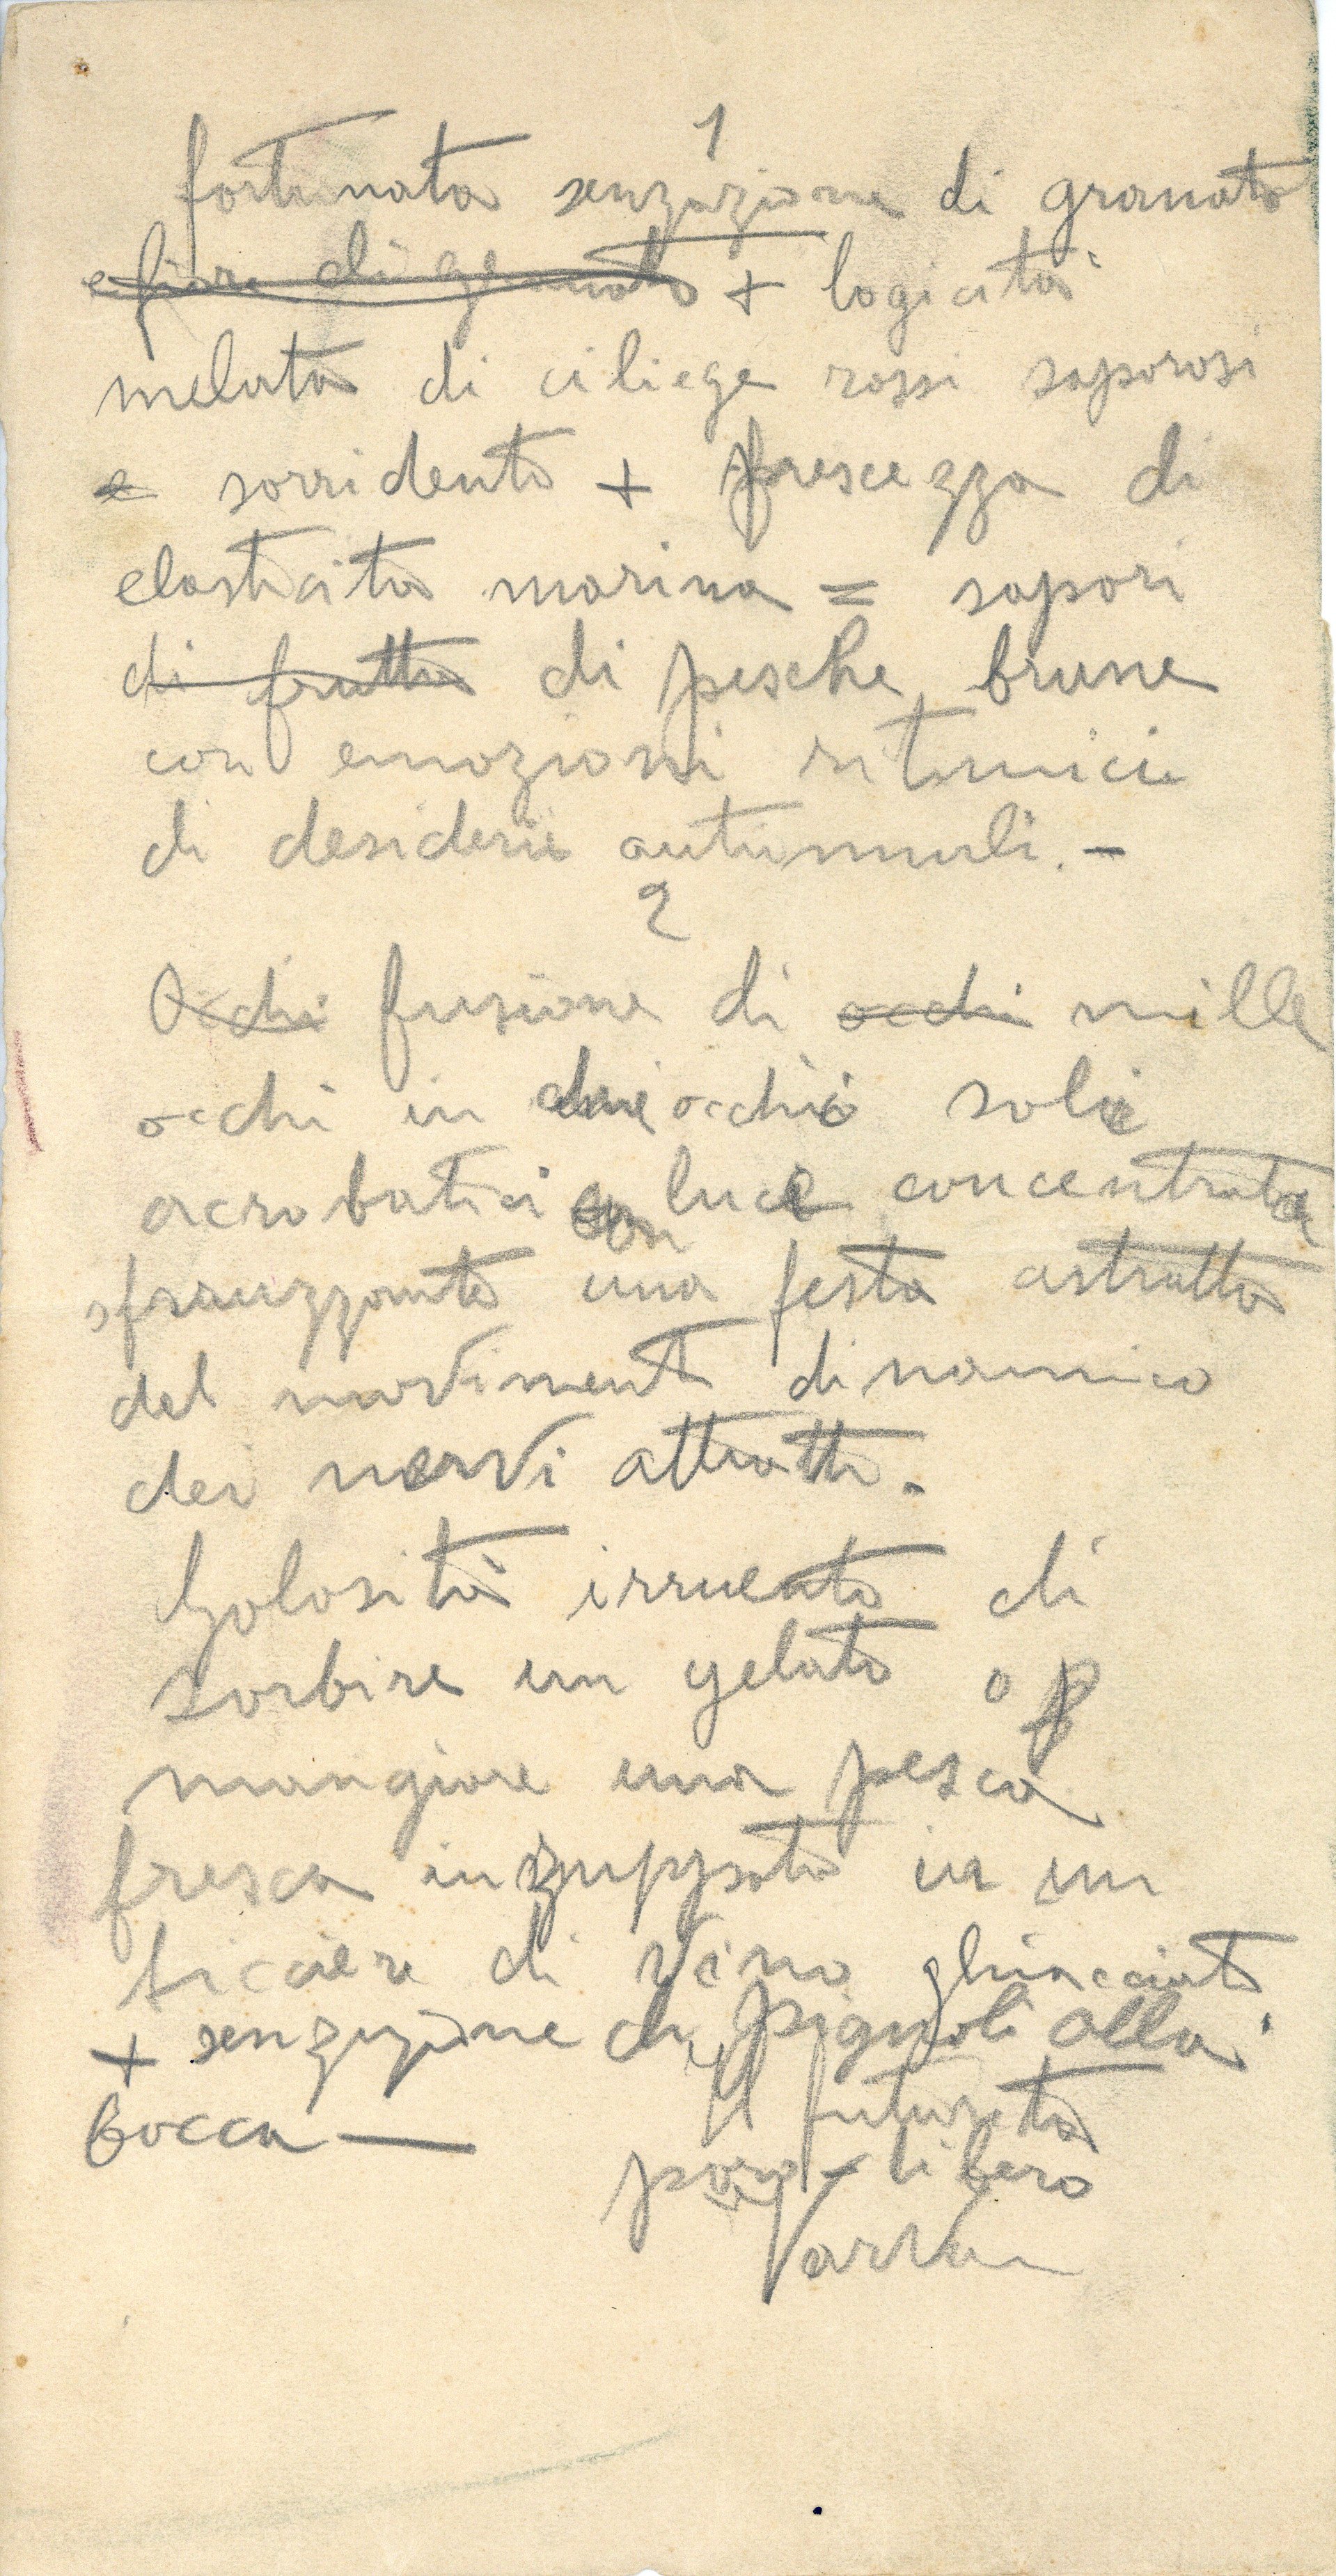 1
fortunata senzazione di granato
e fiori di granato + logicità
melata di ciliege rossi saporosi
e sorridento + frescezza di
elasticita marina = sapori
di frutta di pesche brune
con emozioni ritmici
di desiderii
2
Occhi fusione di occhi mille
occhi in due occhi soli
acrobatici con luce concentrata
una festa astratta
del movimento dinamico
dei nervi attratti.
Golosità irruento di
sorbire un gelato o p
mangiare una pesca
fresca inzuppata in un
bicciere di vino ghiacciato
+ senzazione di pignoli alla
bocca —
Il futurista
libero